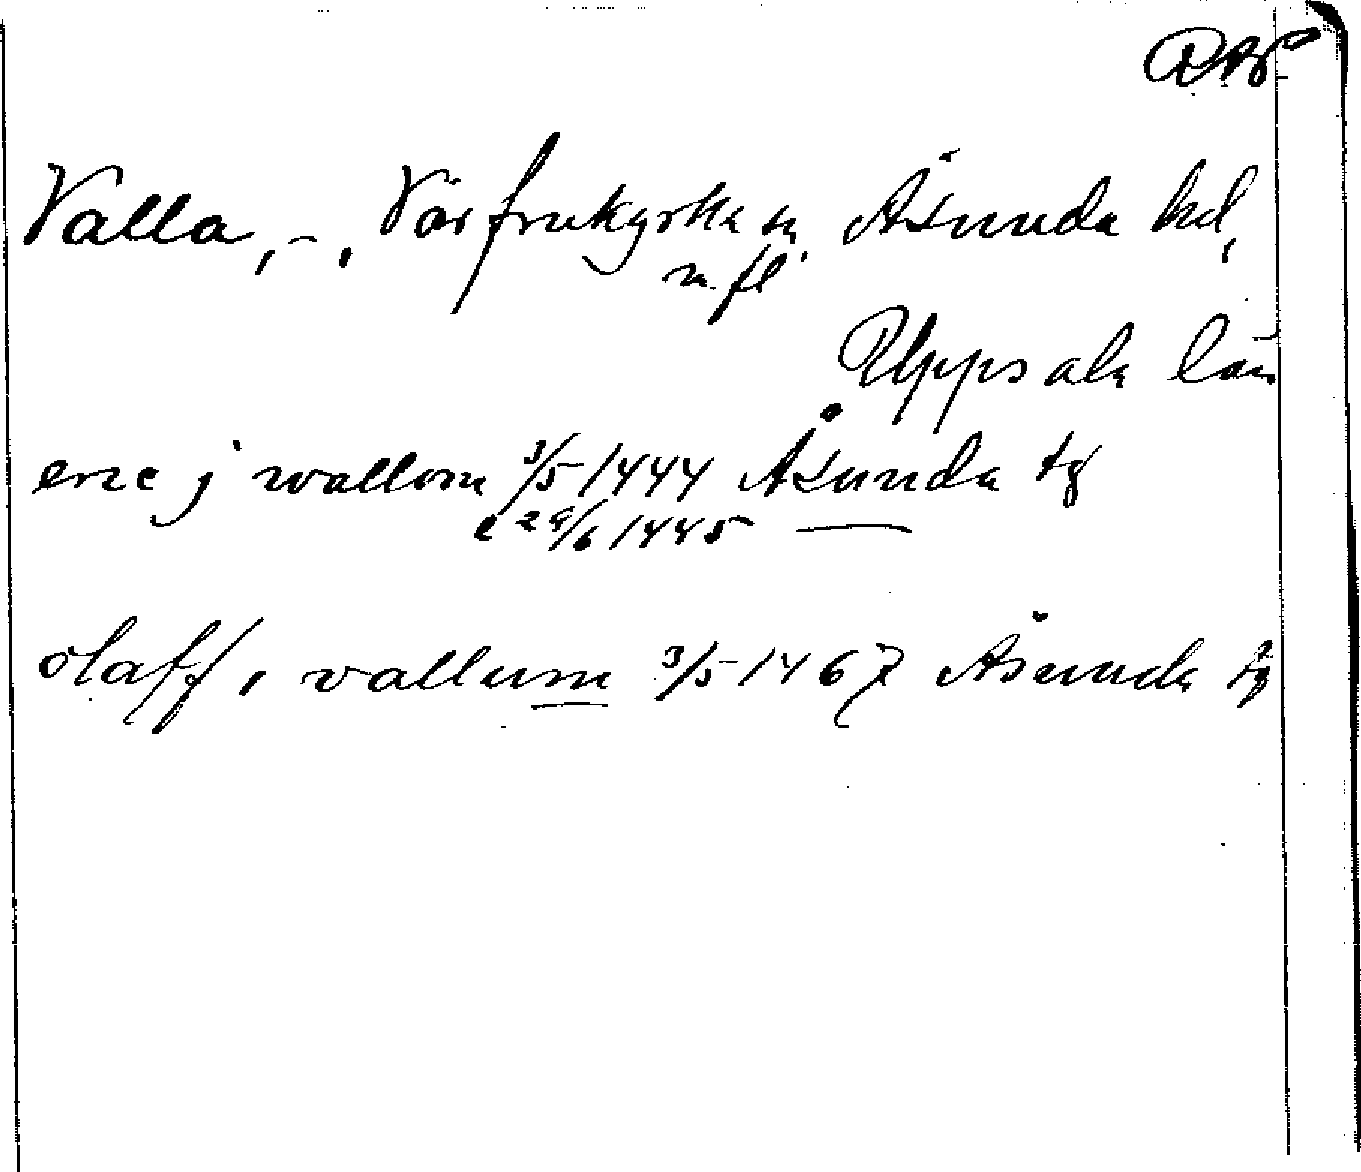 Valla, -, Vårfrukyrka sn, Åsunda hd,
m. fl.
Uppsala län
eric j wallom 3/5 1444 Åsunda tg
29/6 1445
olaff i vallum 3/5 1467 Åsunda tg